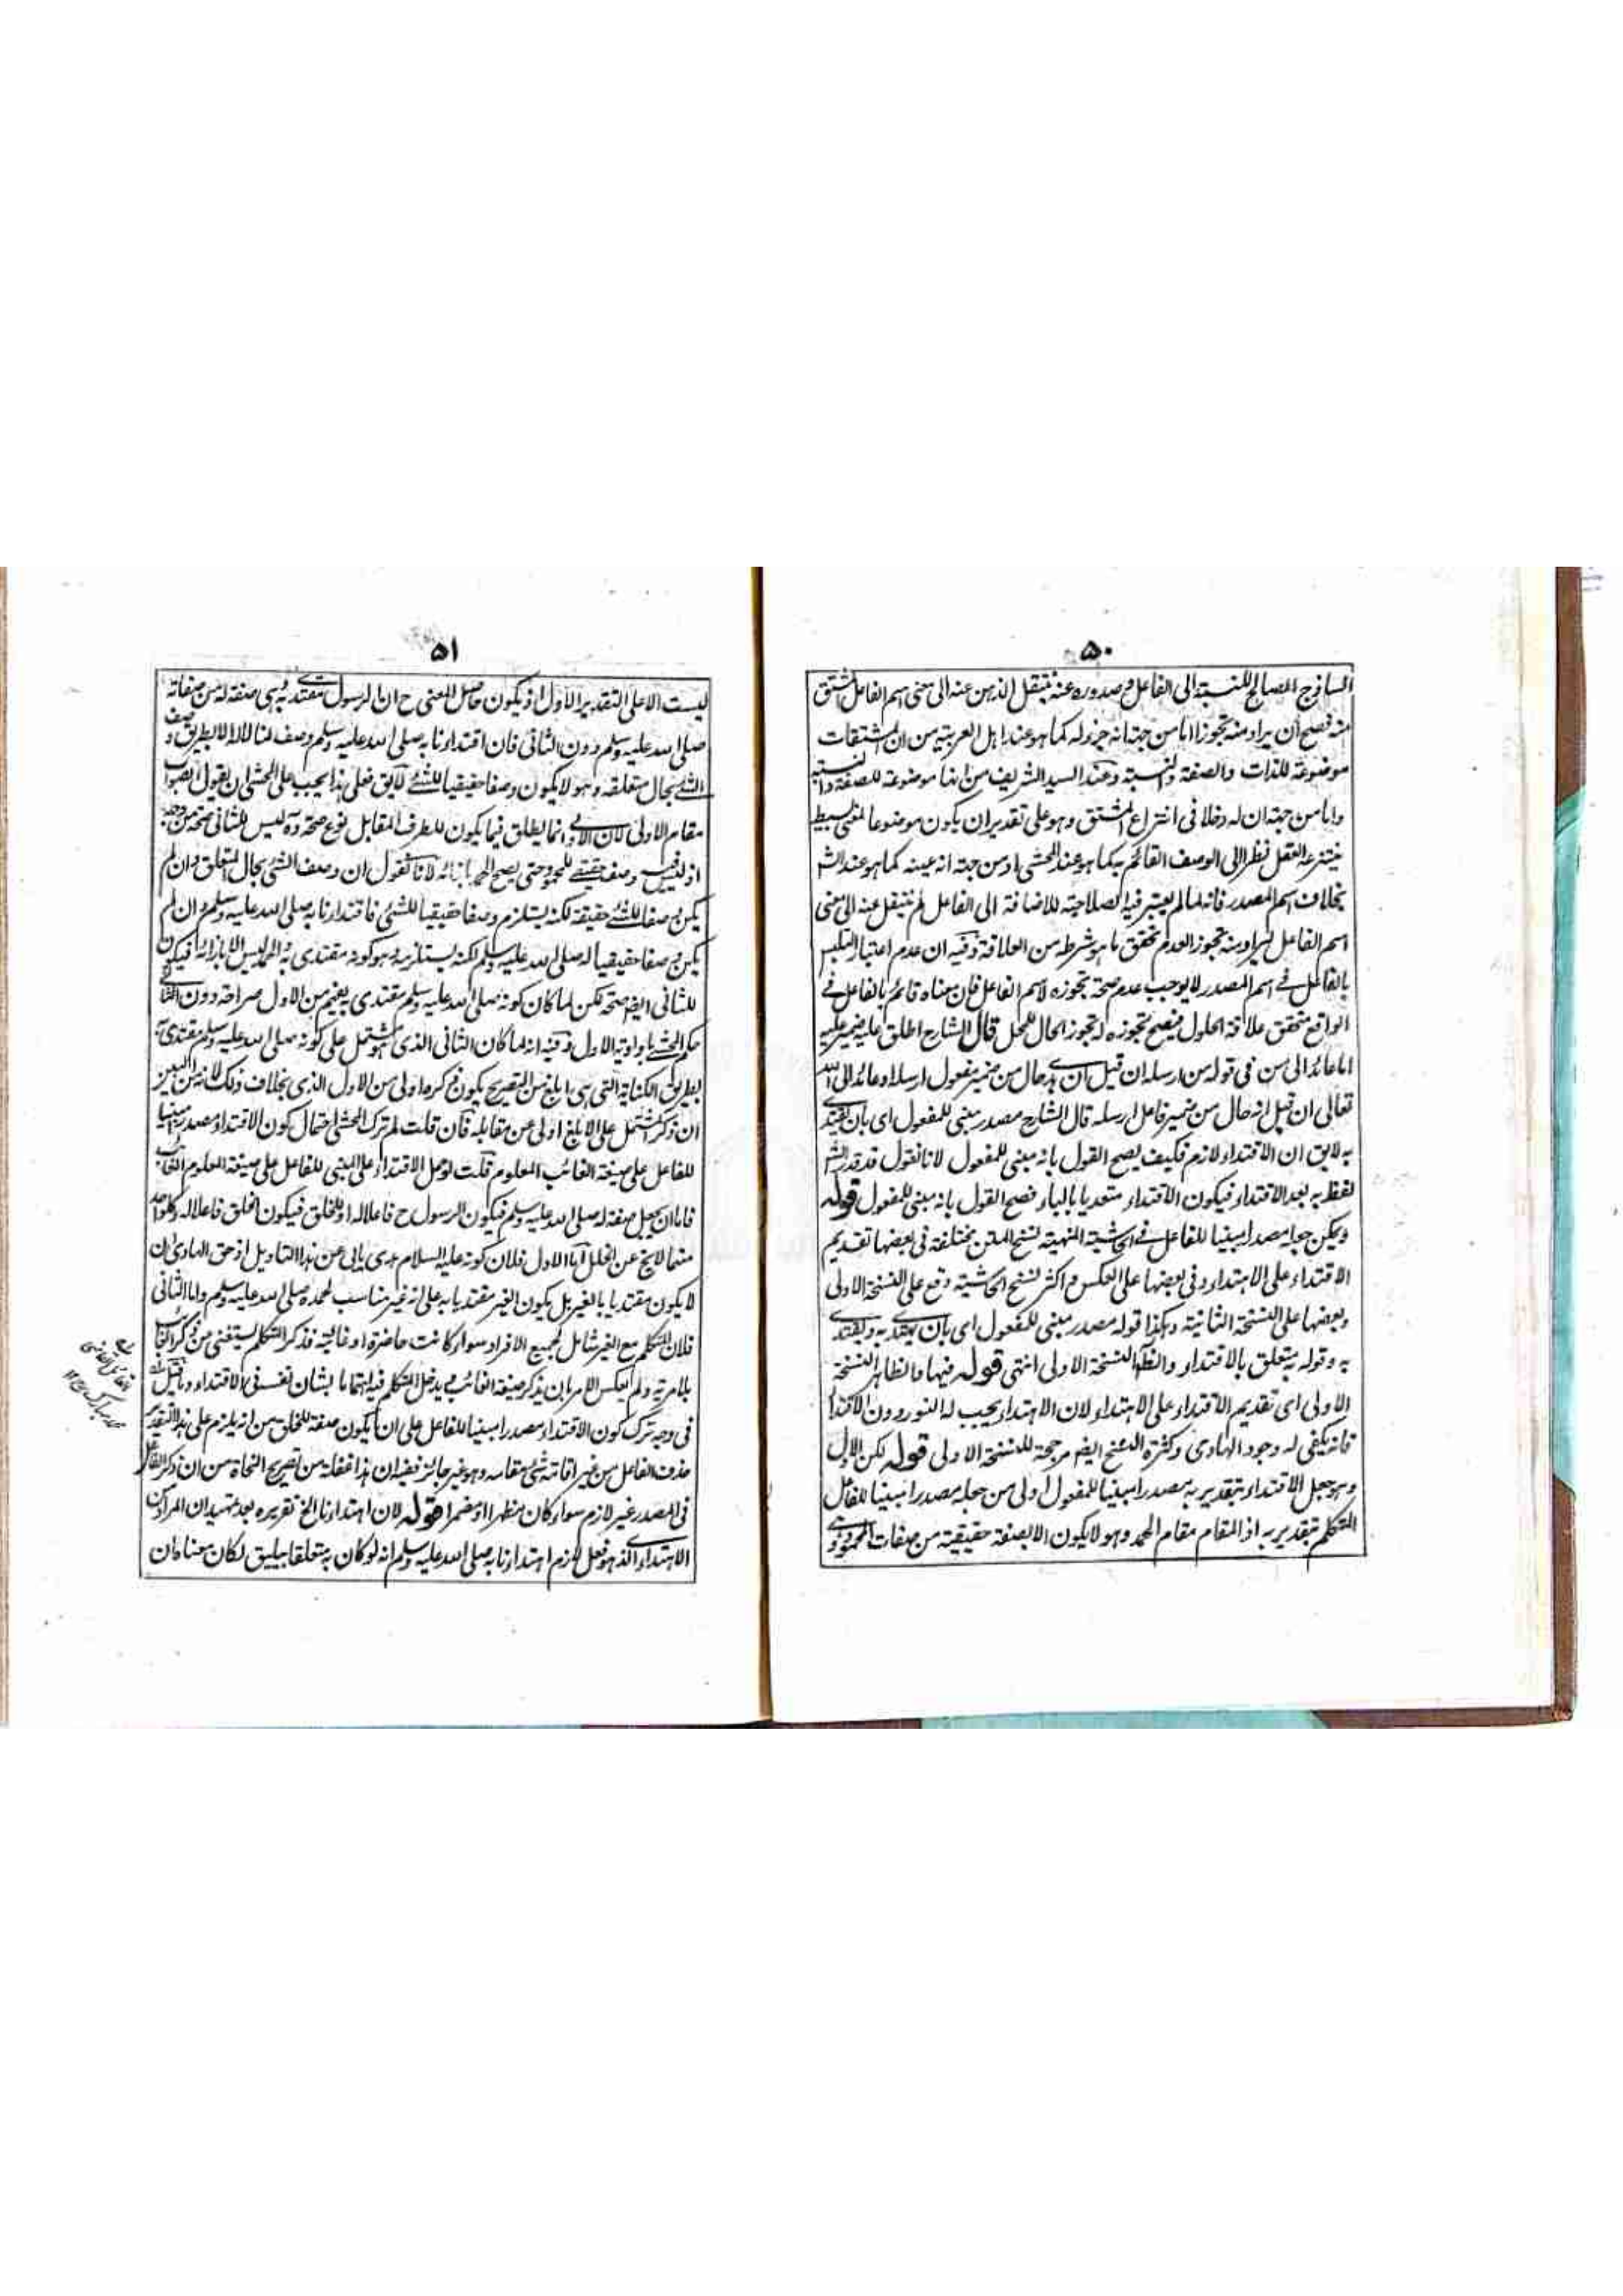 ۵۰
الساذج الصالح للنسبة الى الفاعل وصدوره عنه ينتقل الذهن عنه الى معنى اسم الفاعل المشتق
منه فصح ان يراد منه تجوزا اما من جهة انه جزء له كما هو عند اهل العربية من ان المشتقات
موضوعة للذات والصفة والنسبة وعند السيد الشريف من انها موضوعة للصفة والنسبة
واما من جهة ان له دخلا فى انتزاع المشتق وهو على تقدير ان يكون موضوعا لمعنى بسيط
ينتزعه العقل نظرا الى الوصف القائم به كما هو عند المحشى او من جهة انه عينه كما هو عند الش
بخلاف اسم المصدر فانه لما لم يعتبر فيه الصلاحية للاضافة الى الفاعل لم ينتقل عنه الى معنى
اسم الفاعل ليراد منه تجوز العدم تحقق ما هو شرطه من العلاقة وفيه ان عدم اعتبار التلبس
بالفاعل فى اسم المصدر لا يوجب عدم صحة تجوزه لاسم الفاعل فان معناه قائم بالفاعل فى
الواقع فتحقق علاقة الحلول فيصح تجوزه له تجوز الحال للمحل قال الشارح اطلق عليه ضمير عليه
اما عائد الى من فى قوله من ارسله ان قيل ان هدى حال من ضمير مفعول ارسله او عائد الى الله
تعالى ان قيل انه حال من ضمير فاعل ارسله قال الشارح مصدر مبنى للمفعول اى بان يقتدى
به لايق ان الاقتداء لازم فكيف يصح القول بانه مبنى للمفعول لانا نقول قد قدر الش
لفظ به بعد الاقتداء فيكون الاقتداء متعديا بالباء فصح القول بانه مبنى للمفعول قوله
ويمكن جعله مصدرا مبنيا للفاعل فى الحاشية المنهية نسخ المتن مختلفة فى بعضها تقديم
الاقتداء على الاهتداء وفى بعضها على العكس واكثر نسخ الحاشية وقع على النسخة الاولى
وبعضها على النسخة الثانية وهكذا قوله مصدر مبنى للمفعول اى بان يهتدى به ويقتدى
به وقوله به يتعلق بالاقتداء والظ النسخة الاولى انتهى قوله فيها والظاهر النسخة
الاولى اى تقديم الاقتداء على الاهتداء لان الاهتداء يجب له النور دون الاقتداء
فانه يكفى له وجود الهادى وكثرة النسخ ايضم مرجحة للنسخة الاولى قوله لكن الاول
وهو جعل الاقتداء بتقدير به مصدرا مبنيا للمفعول اولى من جعله مصدرا مبنيا للفاعل
المتكلم بتقدير به اذ المقام مقام الحمد وهو لا يكون الا بصفة حقيقية من صفات المحمود
۵۱
ليست الا على التقدير الاول اذ يكون حاصل المعنى ح ان الرسول مقتدى به وهى صفة له من صفاته
صلى الله عليه وسلم دون الثانى فان اقتداءنا به صلى الله عليه وسلم وصف لنا لا له الا بطريق وصف
الشئ بحال متعلقه وهو لا يكون وصفا حقيقيا للشئ لايق فعلى هذا يجب على المحشى ان يقول الصواب
مقام الاولى لان الاولى انما يطلق فيما يكون للطرف المقابل نوع صحة وه ليس للثانى صحة من وجه
اذ ليس فيه وصف حقيقى للمحمود حتى يصح الحمد بازائه لانا نقول ان وصف الشئ بحال المتعلق وان لم
يكن وصفا للشئ حقيقة لكنه يستلزم وصفا حقيقيا للشئ فاقتداءنا به صلى الله عليه وسلم وان لم
يكن وصفا حقيقيا له صلى الله عليه وسلم لكنه يستلزمه وهو كونه مقتدى به والحمد ليس الا بازائه فيكون
للثانى ايضم صحة لكن لما كان كونه صلى الله عليه وسلم مقتدى به يفهم من الاول صراحة دون الثانى
حكم المحشى باولوية الاول وفيه انه لما كان الثانى الذى هو مشتمل على كونه صلى الله عليه وسلم مقتدى به
بطريق الكناية التى هى ابلغ من التصريح يكون ذكره اولى من الاول الذى بخلاف ذلك لانه من البين
ان ذكر المشتمل على الابلغ اولى عن مقابله فان قلت لم ترك المحشى احتمال كون الاقتداء مصدرا مبنيا
للفاعل على صيغة الغائب المعلوم قلت لو حمل الاقتداء على المبنى للفاعل على صيغة المعلوم الغائب
فاما ان يجعل صفة له صلى الله عليه وسلم فيكون الرسول ح فاعلا له او للخلق فيكون الخلق فاعلا له وكل واحد
منهما لا يخ عن الخلل اما الاول فلان كونه عليه السلام هدى يابى عن هذا التاويل اذ حق الهادى ان
لا يكون مقتديا بالغير بل يكون الغير مقتديا به على انه غير مناسب لحمده صلى الله عليه وسلم واما الثانى
فلان المتكلم مع الغير شامل لجميع الافراد سواء كانت حاضرة او غائبة فذكر المتكلم يستغنى من ذكر الغائب
بلا مرية ولم يعكس الامر بان يذكر صيغة الغائب ويدخل المتكلم فيه اهتماما بشان نفسه فى الاقتداء وما قيل
فى وجه ترك كون الاقتداء مصدرا مبنيا للفاعل على ان يكون صفة للخلق من انه يلزم على هذا التقدير
حذف الفاعل من غير اقامة شئ مقامه وهو غير جائز ففيه ان هذا غفلة من تصريح النحاة من ان ذكر الفاعل
فى المصدر غير لازم سواء كان مظهرا او مضمرا قوله لان اهتداءنا الخ تقريره بعد تمهيد ان المراد من
الاهتداء الذى هو فعل لازم اهتداءنا به صلى الله عليه وسلم انه لو كان به متعلقا بيليق لكان معناه ان